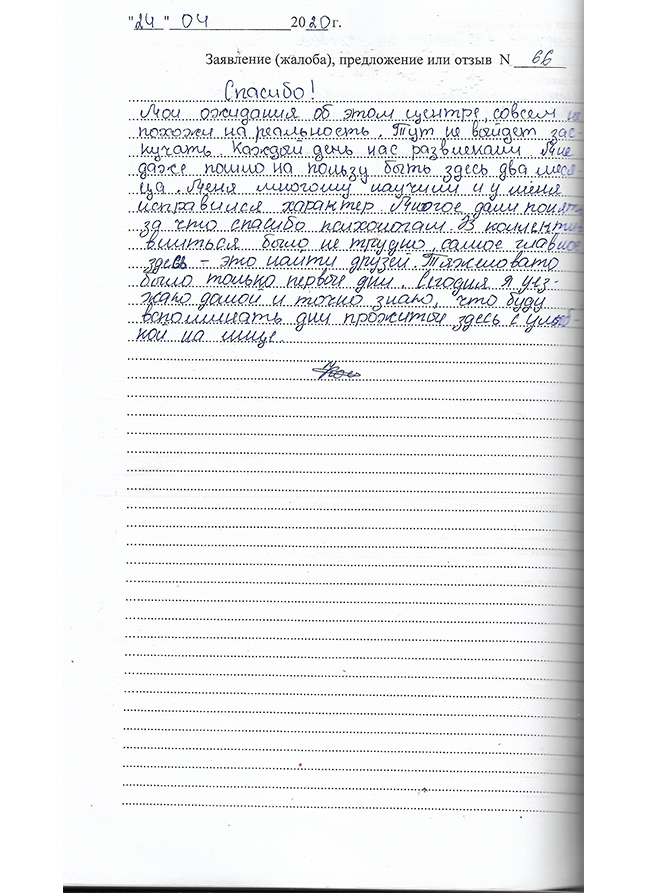 "24" 04 2020 г.
Заявление (жалоба), предложение или отзыв N 66
Спасибо!
Мои ожидания об этом центре, совсем не
похожи на реальность. Тут не выйдет зас-
кучать. Каждый день нас развлекали. Мне
даже пошло на пользу быть здесь два меся-
ца. Меня многому научили и у меня
исправился характер. Многое дали понять
за что спасибо психологам. В коллекти
влиться было не трудно, самое главное
здесь – это найти друзей. Тяжеловато
было только первые дни. Сегодня я уез-
жаю домой и точно знаю, что буду
вспоминать дни прожитые здесь с улыб-
кой на лице.